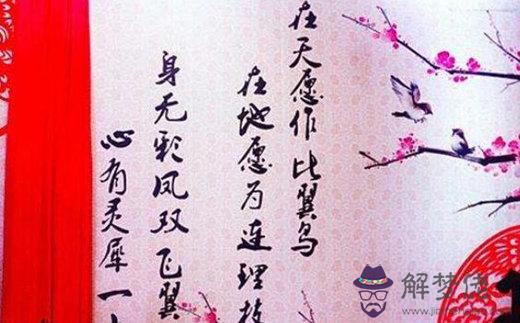 在天愿作比翼鸟
在地愿为连理枝
身无彩凤双飞翼
心有灵犀一
解梦佬